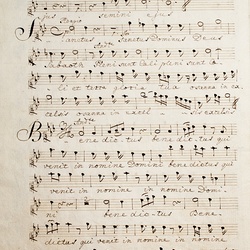 jus semini ejus
Sanctus Sanctus Dominus Deus
Sabaoth Pleni sunt Caeli pleni sunt cae
li et terra gloria tua osanna in ex
celsis osanna in excel sis excelsis
Bene dic tus benedictus qui
venit in nomine Domini benedictus qui
venit in nomine in nomine Domi
ni bene dictus Bene
dictus qui venit in nomine in nomine